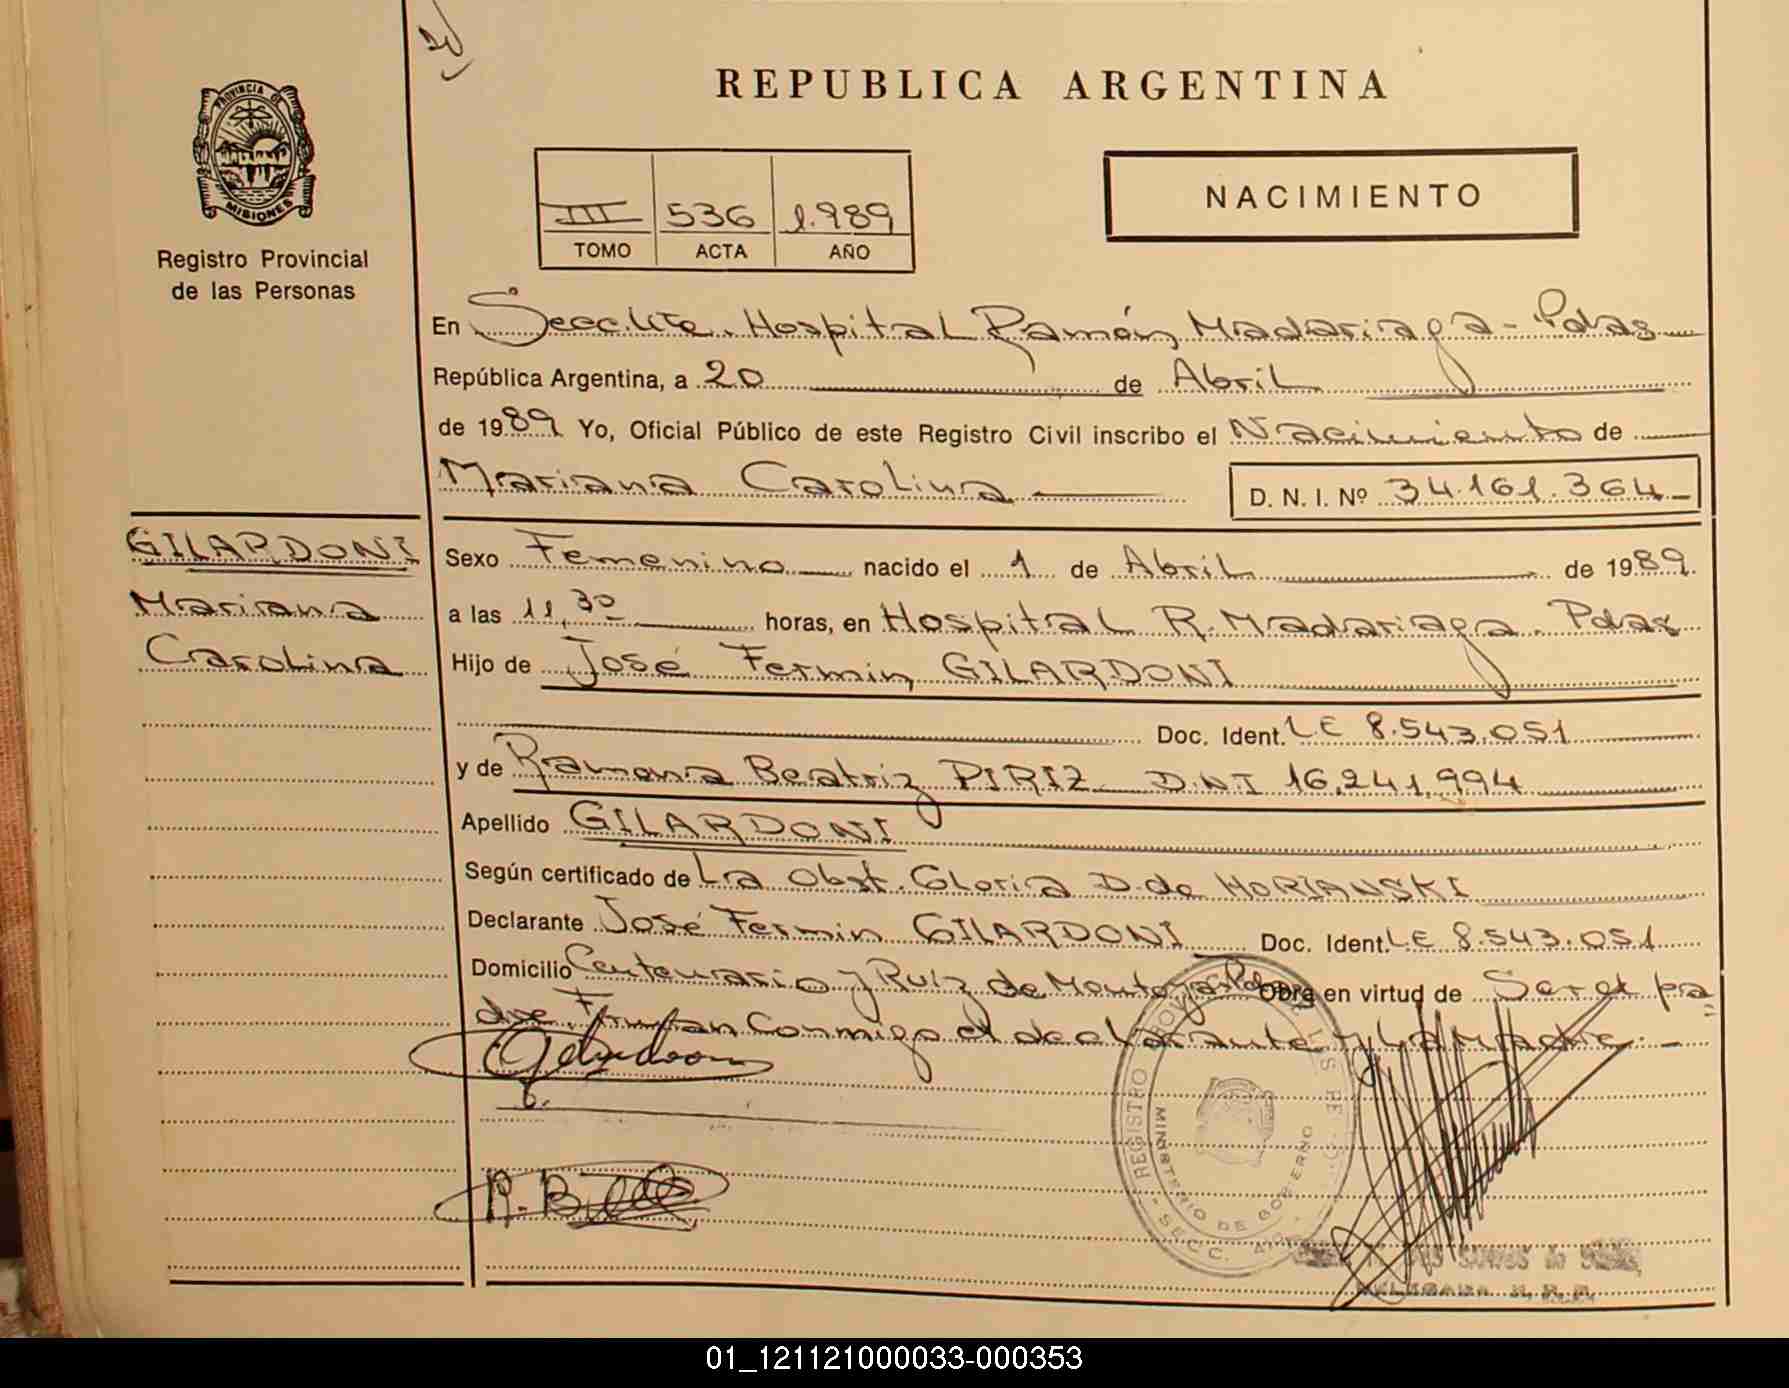 REPUBLICA ARGENTINA
PROVINCIA DE
MISIONES
Registro Provincial
de las Personas
III 536 1.989
TOMO ACTA AÑO
NACIMIENTO
En Secc. Hospital Ramón Madariaga - Pdas
República Argentina, a 20 de Abril
de 1989 Yo, Oficial Público de este Registro Civil inscribo el Nacimiento de
Mariana Carolina D. N. I. Nº 34.161.364
GILARDONI
Mariana
Carolina
Sexo Femenino nacido el 1 de Abril de 1989
a las 11,30 horas, en Hospital R. Madariaga. Pdas
Hijo de José Fermin GILARDONI
Doc. Ident. LE 8.543.051
y de Ramona Beatriz PIRIZ D.N.I 16.241.994
Apellido GILARDONI
Según certificado de La Obst. Gloria D. de HORIANSKI
Declarante José Fermin GILARDONI Doc. Ident. LE 8.543.051
Domicilio Centenario y Ruiz de Montoya Pdas Obra en virtud de Ser el pa
dre. Firman Conmigo el declarante y La Madre. -
REGISTRO
MINISTERIO DE GOBIERNO
SECC.
01_121121000033-000353